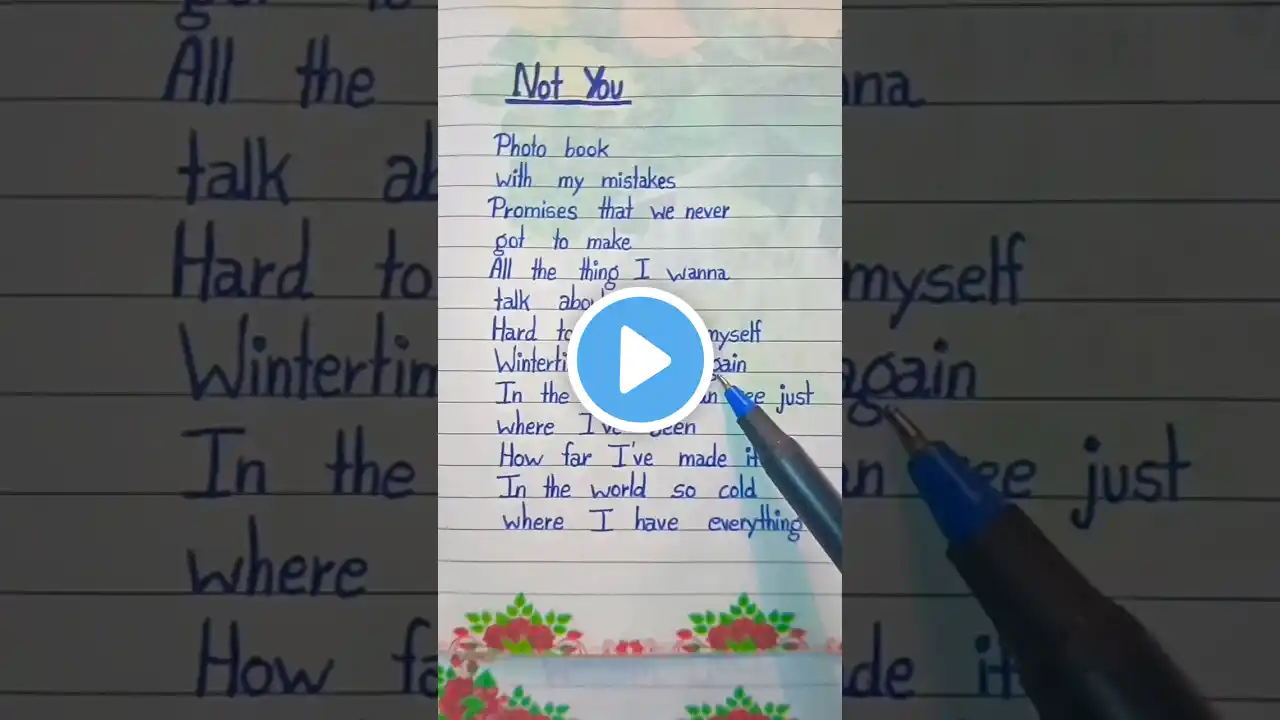 Not You
Photo book
with my mistakes
Promises that we never
got to make
All the thing I wanna
talk
Hard to myself
again
In the just
where I've
How far I've made it
In the world so cold
where I have everything